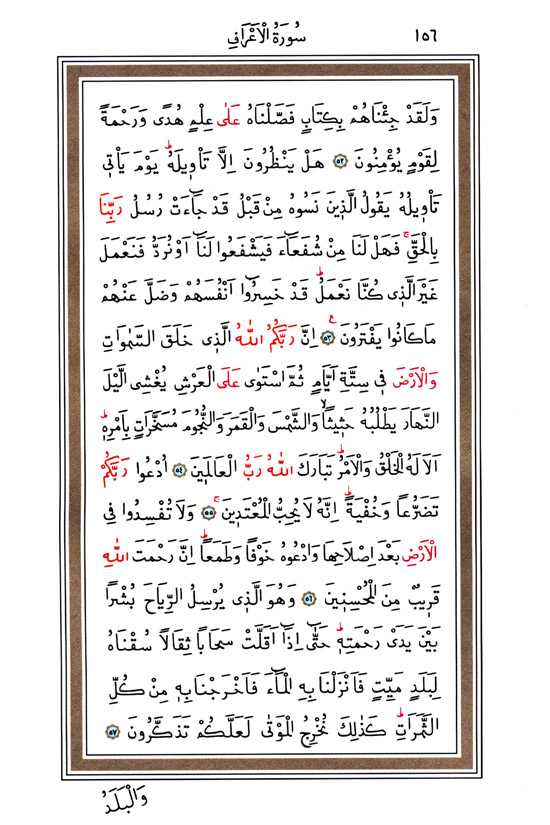 ١٥٦ سُورَةُ الْاَعْرَافِ
وَلَقَدْ جِئْنَاهُمْ بِكِتَابٍ فَصَّلْنَاهُ عَلٰى عِلْمٍ هُدًى وَرَحْمَةً
لِقَوْمٍ يُؤْمِنُونَ ﴿٥٢﴾ هَلْ يَنْظُرُونَ اِلَّا تَأْوٖيلَهُۜ يَوْمَ يَأْتٖى
تَأْوٖيلُهُ يَقُولُ الَّذٖينَ نَسُوهُ مِنْ قَبْلُ قَدْ جَٓاءَتْ رُسُلُ رَبِّنَا
بِالْحَقِّۚ فَهَلْ لَنَا مِنْ شُفَعَٓاءَ فَيَشْفَعُوا لَنَٓا اَوْ نُرَدُّ فَنَعْمَلَ
غَيْرَ الَّذٖى كُنَّا نَعْمَلُۜ قَدْ خَسِرُٓوا اَنْفُسَهُمْ وَضَلَّ عَنْهُمْ
مَا كَانُوا يَفْتَرُونَ ﴿٥٣﴾ اِنَّ رَبَّكُمُ اللّٰهُ الَّذٖى خَلَقَ السَّمٰوَاتِ
وَالْاَرْضَ فٖى سِتَّةِ اَيَّامٍ ثُمَّ اسْتَوٰى عَلَى الْعَرْشِ يُغْشِى الَّيْلَ
النَّهَارَ يَطْلُبُهُ حَثٖيثًاۙ وَالشَّمْسَ وَالْقَمَرَ وَالنُّجُومَ مُسَخَّرَاتٍ بِاَمْرِهٖۜ
اَلَا لَهُ الْخَلْقُ وَالْاَمْرُۜ تَبَارَكَ اللّٰهُ رَبُّ الْعَالَمٖينَ ﴿٥٤﴾ اُدْعُوا رَبَّكُمْ
تَضَرُّعًا وَخُفْيَةًۜ اِنَّهُ لَا يُحِبُّ الْمُعْتَدٖينَۚ ﴿٥٥﴾ وَلَا تُفْسِدُوا فِى
الْاَرْضِ بَعْدَ اِصْلَاحِهَا وَادْعُوهُ خَوْفًا وَطَمَعًاۜ اِنَّ رَحْمَتَ اللّٰهِ
قَرٖيبٌ مِنَ الْمُحْسِنٖينَ ﴿٥٦﴾ وَهُوَ الَّذٖى يُرْسِلُ الرِّيَاحَ بُشْرًا
بَيْنَ يَدَىْ رَحْمَتِهٖۜ حَتّٰٓى اِذَٓا اَقَلَّتْ سَحَابًا ثِقَالًا سُقْنَاهُ
لِبَلَدٍ مَيِّتٍ فَاَنْزَلْنَا بِهِ الْمَٓاءَ فَاَخْرَجْنَا بِهٖ مِنْ كُلِّ
الثَّمَرَاتِۜ كَذٰلِكَ نُخْرِجُ الْمَوْتٰى لَعَلَّكُمْ تَذَكَّرُونَ ﴿٥٧﴾
وَالْبَلَدُ